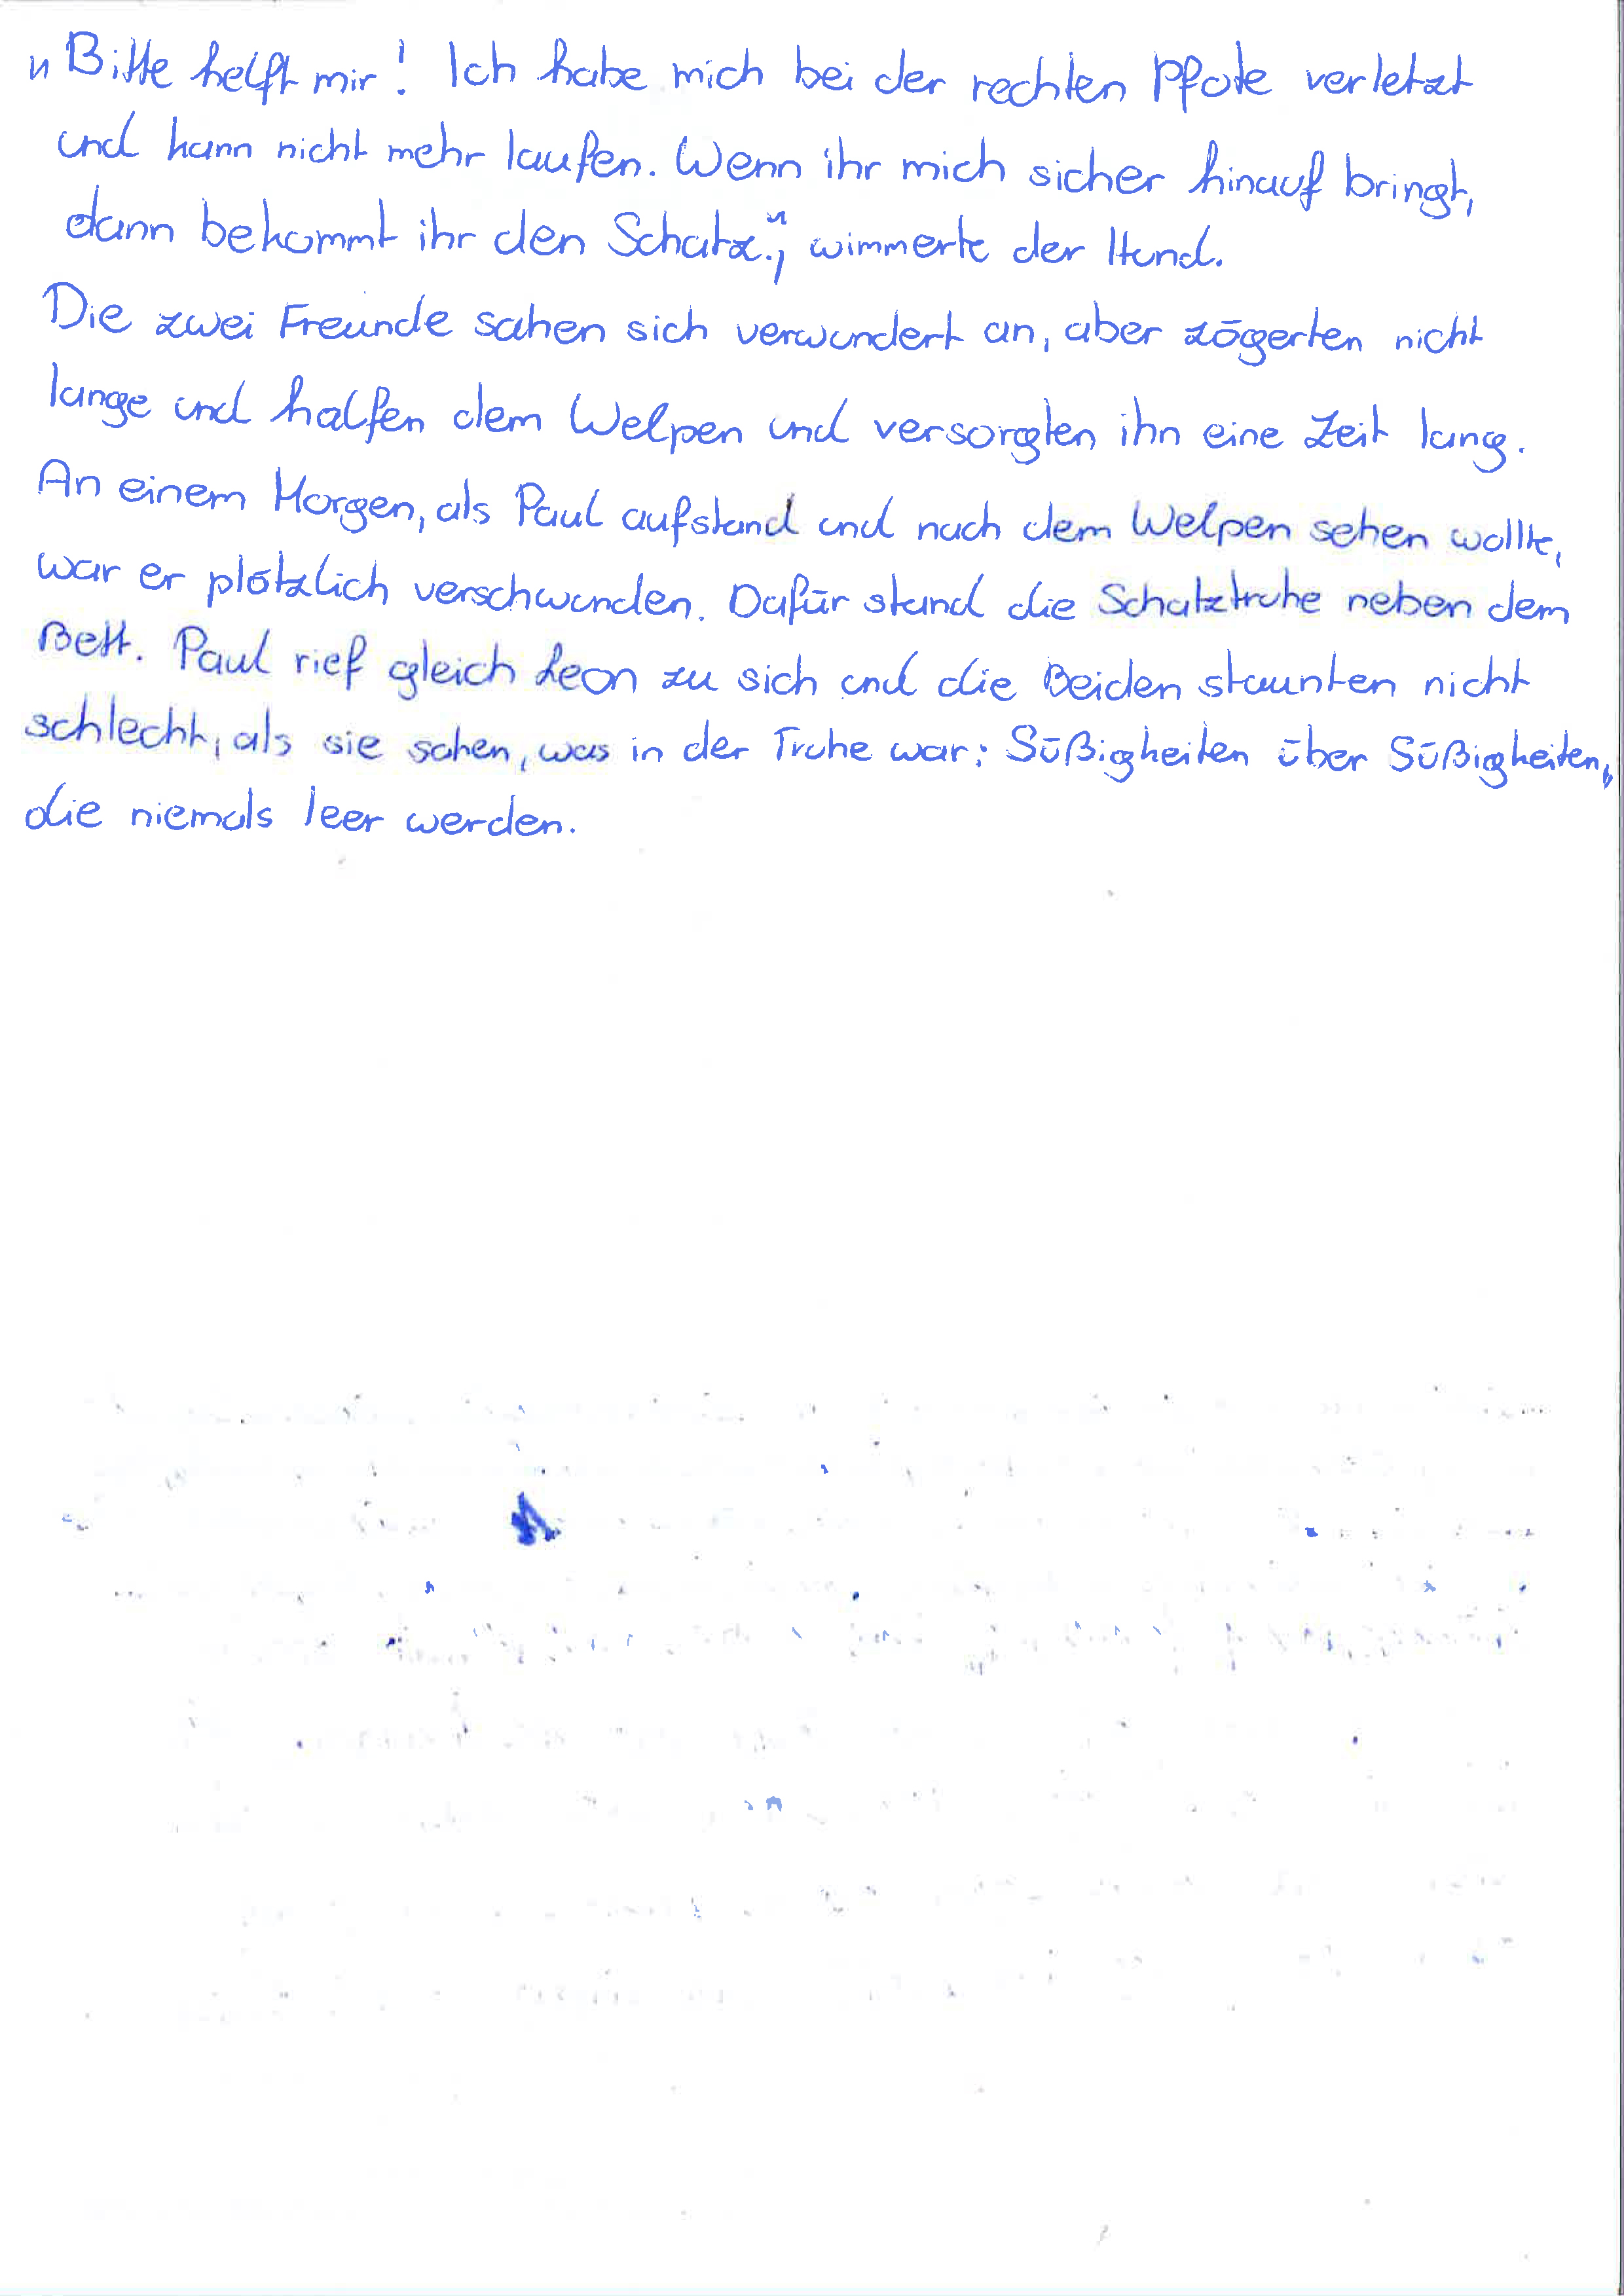 „Bitte helft mir! Ich habe mich bei der rechten Pfote verletzt
und kann nicht mehr laufen. Wenn ihr mich sicher hinauf bringt,
dann bekommt ihr den Schatz.“, wimmerte der Hund.
Die zwei Freunde sahen sich verwundert an, aber zögerten nicht
lange und halfen dem Welpen und versorgten ihn eine Zeit lang.
An einem Morgen, als Paul aufstand und nach dem Welpen sehen wollte,
war er plötzlich verschwunden. Dafür stand die Schatztruhe neben dem
Bett. Paul rief gleich Leon zu sich und die Beiden staunten nicht
schlecht, als sie sahen, was in der Truhe war: Süßigkeiten über Süßigkeiten,
die niemals leer werden.